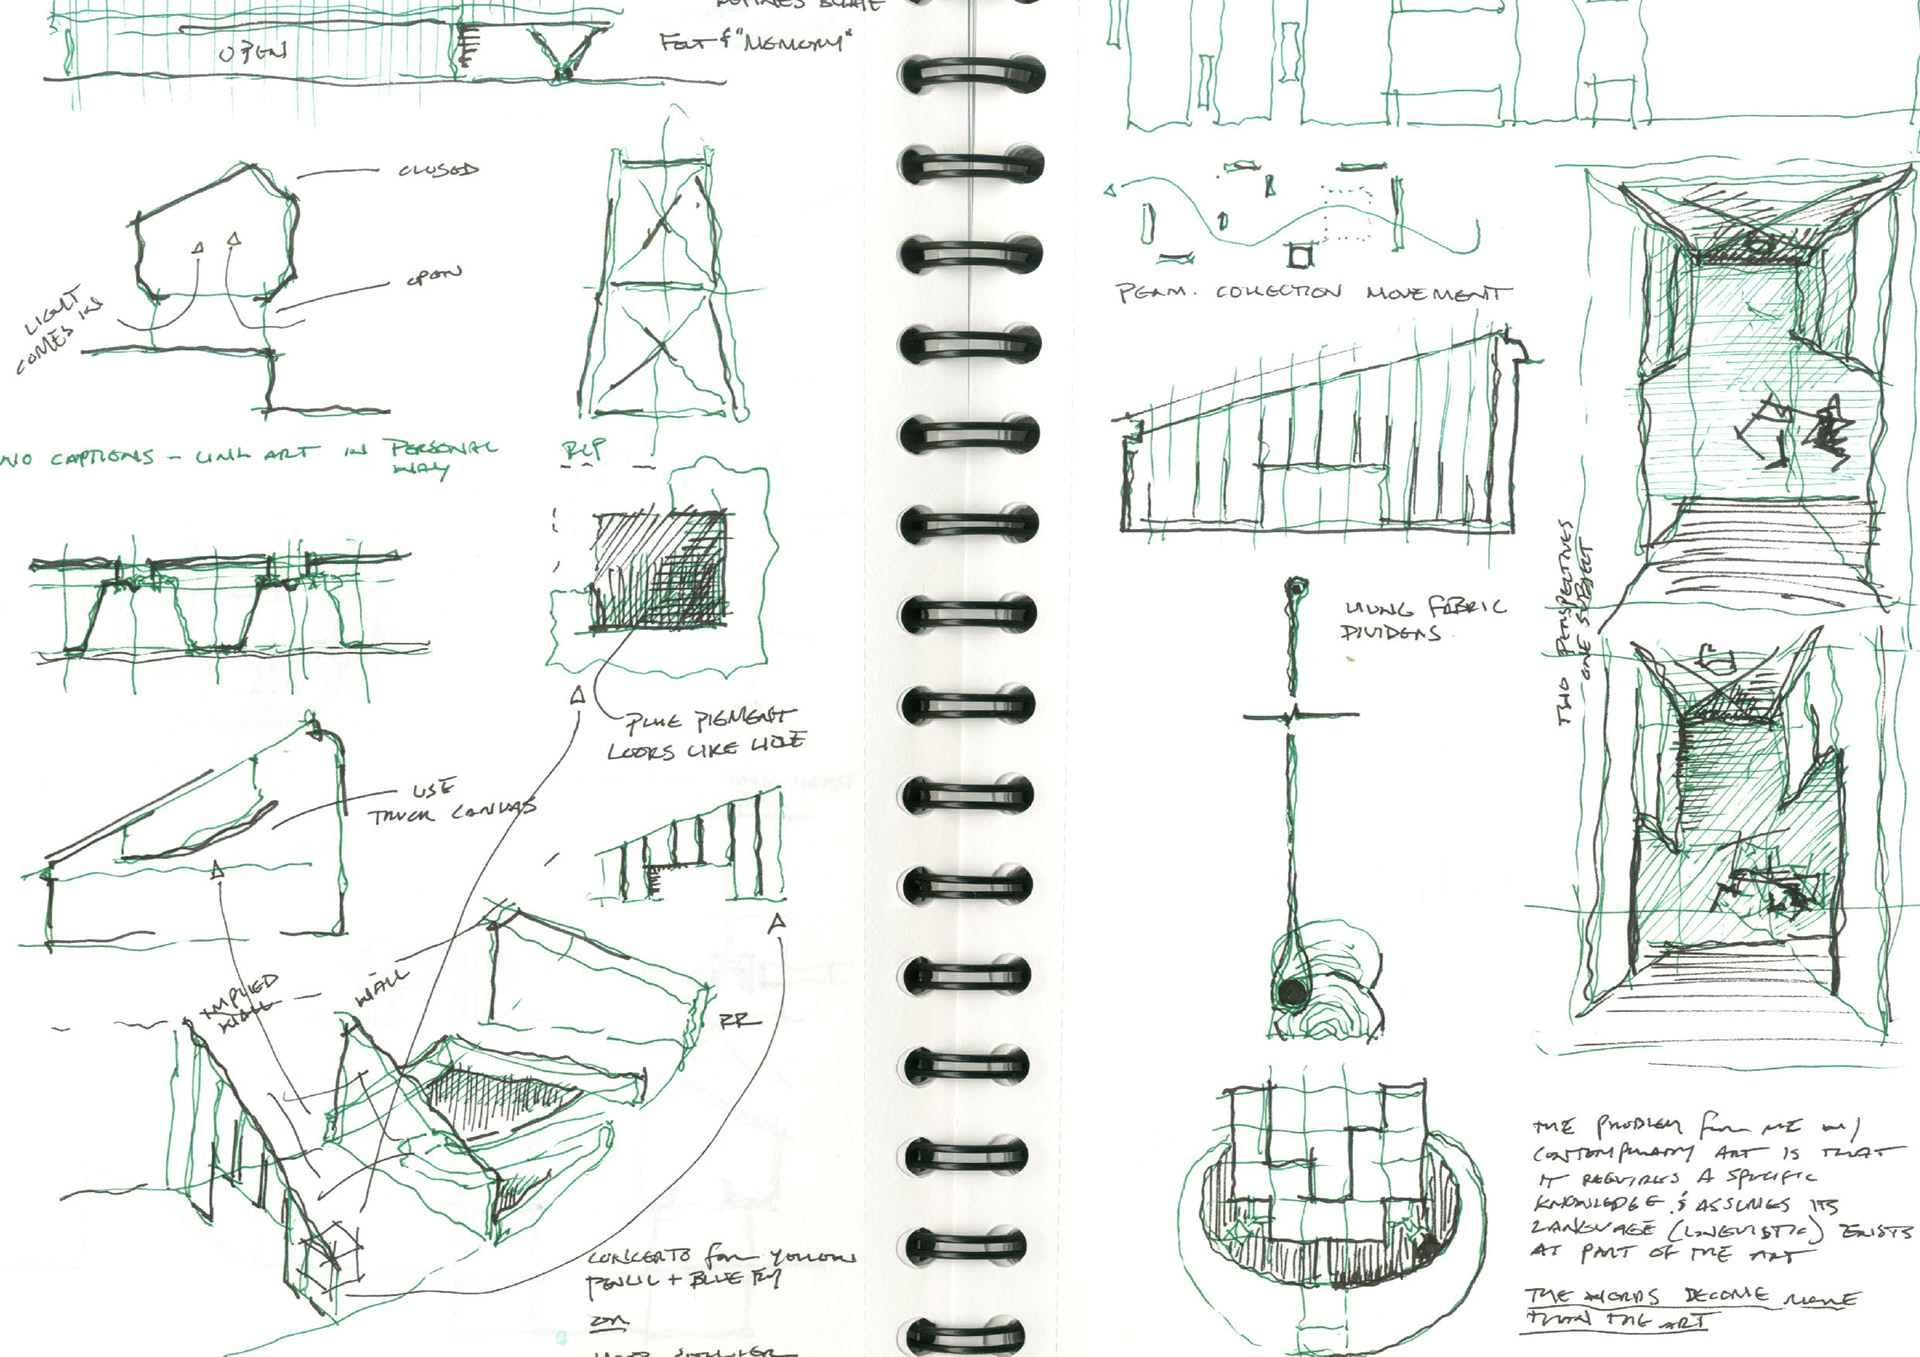 OPEN
FELT & "MEMORY"
CLOSED
OPEN
LIGHT
COMES IN
NO CAPTIONS - LINK ART IN PERSONAL
WAY
RCP
BLUE PIGMENT
LOOKS LIKE HOLE
USE
TRUCK CANVAS
IMPLIED
WALL
RR
CONCERTO for YELLOW
PENCIL + BLUE FLY
ON
PERM. COLLECTION MOVEMENT
HUNG FABRIC
DIVIDERS
TWO PERSPECTIVES
ONE SUBJECT
THE PROBLEM for ME w/
CONTEMPORARY ART IS THAT
IT REQUIRES A SPECIFIC
KNOWLEDGE & ASSUMES ITS
LANGUAGE (LINGUISTIC) EXISTS
AT PART OF THE ART
THE WORDS BECOME MORE
THAN THE ART